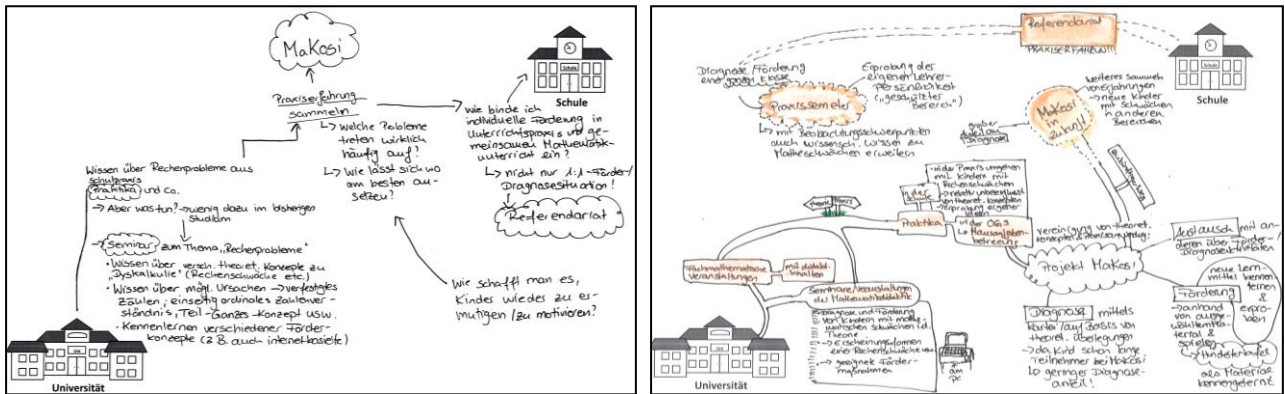 MaKosi
Praxiserfahrung
sammeln
↳ Welche Probleme
treten wirklich
häufig auf?
↳ Wie lässt sich wo
am besten an-
setzen?
Schule
Schule
Wie binde ich
individuelle Förderung in
Unterrichtspraxis und ge-
meinsamen Mathematik-
unterricht ein?
↳ nicht nur 1:1-Förder-/
Diagnosesituation!
Referendariat
Wissen über Rechenprobleme aus
schulpraxis
Praktika und Co.
→ Aber was tun? → wenig dazu im bisherigen
Studium
→ Seminar zum Thema „Rechenprobleme"
• Wissen über versch. theoret. Konzepte zu
„Dyskalkulie" (Rechenschwäche etc.)
• Wissen über mögl. Ursachen → verfestigtes
zählen, einseitig ordinales Zahlenver-
ständnis, Teil-Ganzes-Konzept usw.
• Kennenlernen verschiedener Förder-
konzepte (z.B. auch internetbasierte)
Wie schafft man es,
Kindes wieder zu er-
mutigen / zu motivieren?
Universität
Referendariat
PRAXISERFAHRUNG!!!
Schule
Schule
Diagnose / Förderung
einer ganzen Klasse
Praxissemester
Erprobung der
eigenen Lehrer-
persönlichkeit
(„geschützter
Bereich")
↳ mit Beobachtungsschwerpunkten
auch wissensch. Wissen zu
Matheschwächen erweitern
weiteres Sammeln
von Erfahrungen
→ neue Kinder
mit Schwächen
in anderen
Bereichen
MaKosi
in
Zukunft
großer
Anteil an
Diagnose
Theorie
Praxis
Praktika
in der
Schule
→ in der Praxis umgehen
mit Kindern mit
Rechenschwächen
→ relativ unbeeinflusst
von theoret. Konzepten
→ Erprobung eigener
Ideen
in der OGS
↳ Hausaufgaben-
betreuung
Vereinigung von theoret.
Projekt MaKosi
Austausch mit an-
deren über Förder-/
Diagnoseaktivitäten
neue Lern-
mittel kennen-
lernen &
erpro-
ben
Förderung
→ anhand
von ausge-
wähltem Ma-
terial &
spielen
Hundertertafel
als Material
kennengelernt
Diagnose mittels
Kartei / auf Basis von
theoret. Überlegungen
→ da Kind schon lange
Teilnehmer bei MaKosi
↳ geringer Diagnose-
anteil!
Fachmathematische
Veranstaltungen
mit didakt.
Inhalten
Seminare/Veranstaltungen
der Mathematikdidaktik
Diagnose und Förderung
von Kindern mit mathe-
matischen Schwächen i.d.
Theorie
→ Erscheinungsformen
einer Rechenschwäche
→ geeignete Förder-
maßnahmen
am
PC
Universität